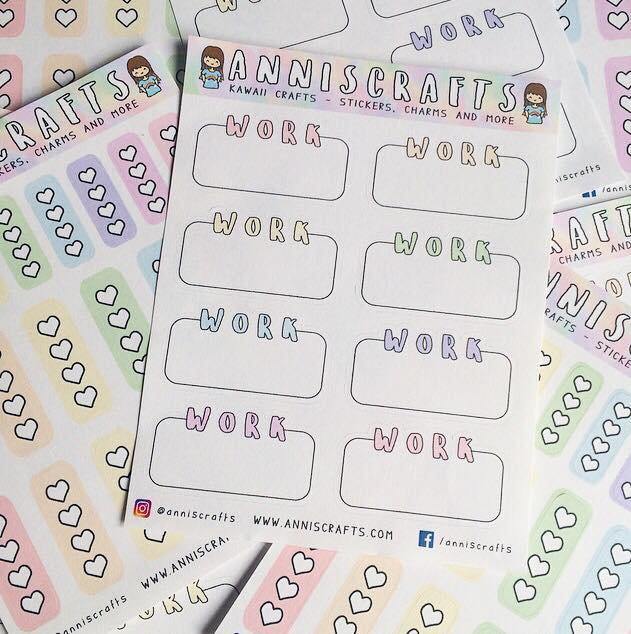 WORK
ANNISCRAFTS
KAWAII CRAFTS - STICKERS, CHARMS AND MORE
WORK WORK
WORK WORK
WORK WORK
WORK WORK
@anniscrafts WWW.ANNISCRAFTS.COM /anniscrafts
CRAFTS
STICKERS, CHARMS AND MORE
/anniscrafts
CHARMS AND MORE
CRAFTS - STICKE
WWW.ANNISCRA
anniscrafts
WORK